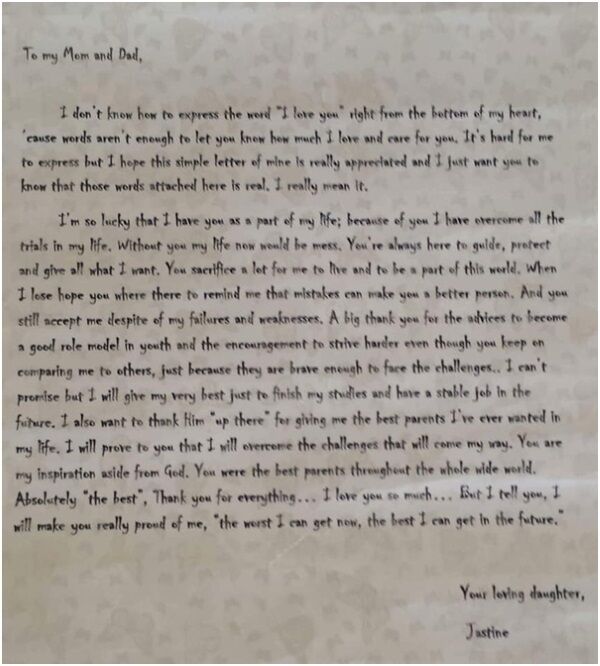 To my Mom and Dad,
I don't know how to express the word "I love you" right from the bottom of my heart,
'cause words aren't enough to let you know how much I love and care for you. It's hard for me
to express but I hope this simple letter of mine is really appreciated and I just want you to
know that those words attached here is real. I really mean it.
I'm so lucky that I have you as a part of my life; because of you I have overcome all the
trials in my life. Without you my life now would be mess. You're always here to guide, protect
and give all what I want. You sacrifice a lot for me to live and to be a part of this world. When
I lose hope you where there to remind me that mistakes can make you a better person. And you
still accept me despite of my failures and weaknesses. A big thank you for the advices to become
a good role model in youth and the encouragement to strive harder even though you keep on
comparing me to others, just because they are brave enough to face the challenges.. I can't
promise but I will give my very best just to finish my studies and have a stable job in the
future. I also want to thank Him "up there" for giving me the best parents I've ever wanted in
my life. I will prove to you that I will overcome the challenges that will come my way. You are
my inspiration aside from God. You were the best parents throughout the whole wide world.
Absolutely "the best", Thank you for everything... I love you so much... But I tell you, I
will make you really proud of me, "the worst I can get now, the best I can get in the future."
Your loving daughter,
Jastine